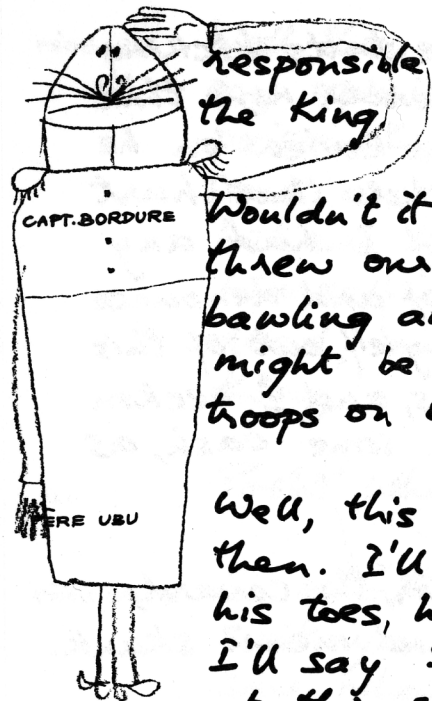 responsible
the King
CAPT. BORDURE
Wouldn't it
threw our
bawling
might be
troops on
PERE UBU
Well, this
then. I'll
his toes,
I'll say